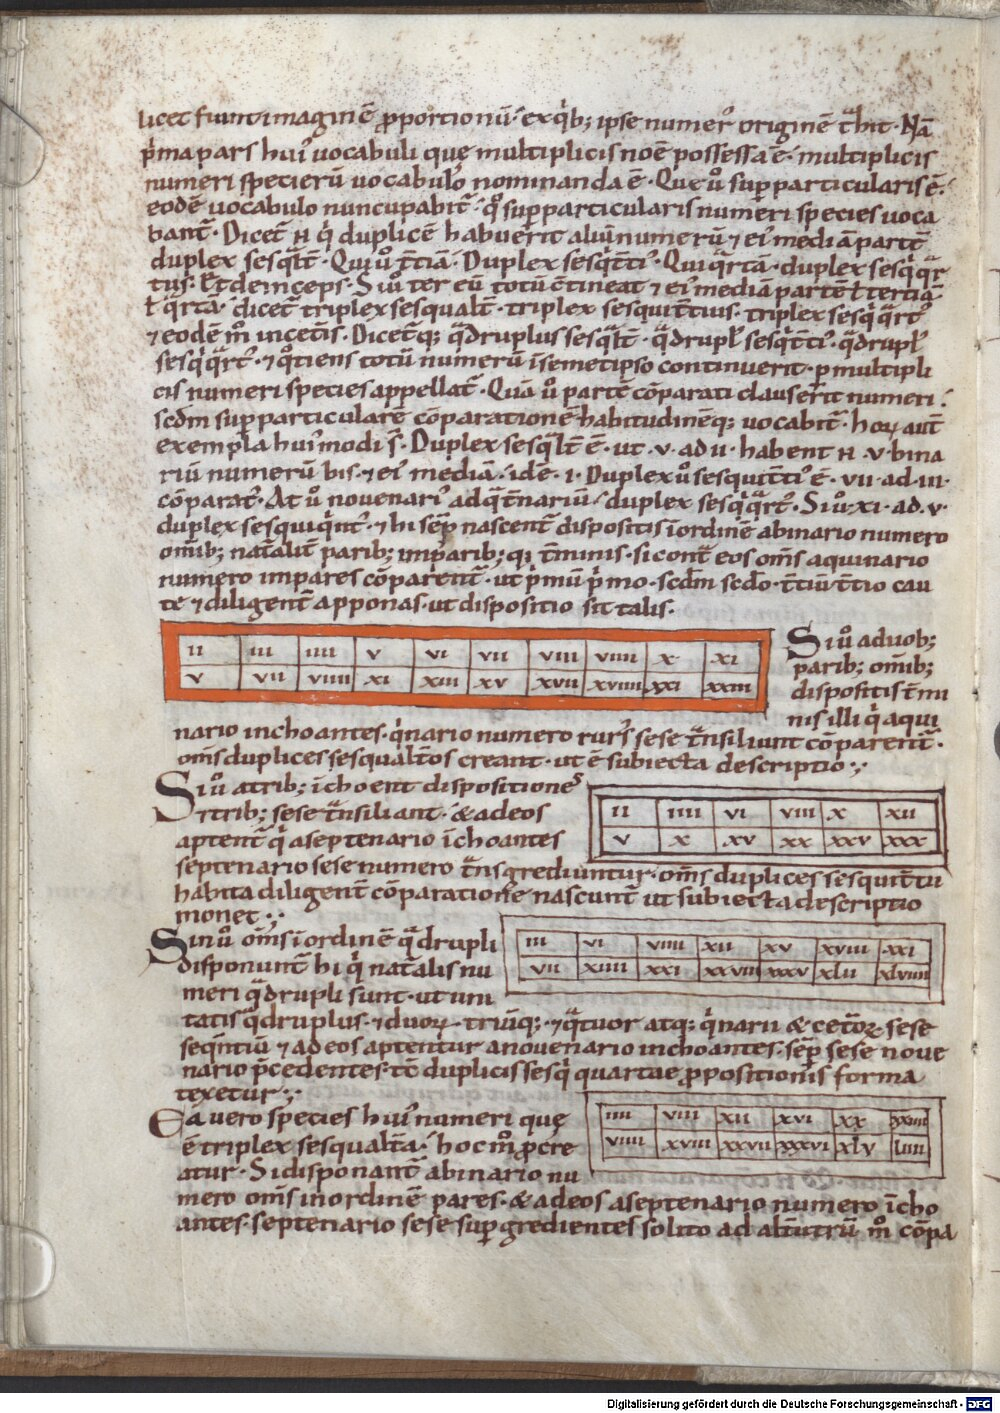 licet fiunt imaginē ꝓportionū · ex qͥb; ipse numerꝰ originē tͣhit · Nā
pͥma pars huiꝰ vocabuli que multiplicis noē possessa ē · multiplicis
numeri specierū vocabulo nominanda ē · Que ůͦ suꝑparticularis ē ·
eodē vocabulo nuncupabit̄ · qͦ suꝑparticularis numeri species voca
bant̄ · Dicet̄ ꞥ qͥ duplicē habuerit aliū numerū ⁊ eiꝰ mediā partē
duplex sesqͣlt̄ · Qui ůͦ t̄ciā · Duplex sesqͥt̄tiꝰ · Qui qͣrtā · duplex sesqͥqͣr
tus · Et deinceps · Si ůͦ ter eū totū c̄tineat ⁊ eiꝰ mediā partē ł tertiā
ł qͣrtā dicet̄ triplex sesqualt̄ · triplex sesquit̄tius · triplex sesqͥqͣrtꝰ
⁊ eodē mͦ in cet̄is · Dicet̄q; qͣdruplus sesqͣlt̄ · qͣdruplꝰ sesqͥt̄tiꝰ · qͣdruplꝰ
sesqͥqͣrtꝰ · ⁊ qͦtiens totū numerū ī semetipso continuerit · ꝑ multipli
cis numeri species appellat̄ · Quā ůͦ partē cōparati clauserit numeri ·
scdm suꝑparticularē cōparationē habitudinēq; vocabit̄ · hoꝝ aut̄
exempla huiꝰmodi s̄ · Duplex sesqͣlt̄ ē · ut · v · ad ii · habent ꞥ · v · bina
riū numerū bis · ⁊ eiꝰ mediā · idē · i · Duplex ůͦ sesquit̄tiꝰ ē · vii · ad · iii ·
cōparatꝰ · At ůͦ novenariꝰ ad qͣt̄nariū · duplex sesqͥqͣrtꝰ · Si ůͦ · xi · ad · v ·
duplex sesquiqͥntꝰ · ⁊ hi seꝑ nascent̄ dispositis ī ordinē a binario numero
omīb; nat̄alit̄ parib; imparib; qꝫ t̄minis · si cont̄ eos oms̄ a quinario
numero impares cōparent̄ · ut pͥmū pͥmo · scdm scdo · t̄tiū t̄tio cau
te ⁊ diligent̄ apponas · ut dispositio sit talis ·
ii iii iiii v vi vii viii viiii x xi
v vii viiii xi xiii xv xvii xviiii xxi xxiii
Si ůͦ a duob;
parib; omīb;
dispositis t̄mi
nis illi qͥ a qui
nario inchoantes · qͥnario numero rursꝰ sese tͣnsiliunt cōparent̄ ·
oms̄ duplices sesqualt̄os creant · ut ē subiecta descriptio ·
Si ůͦ a trib; īchoent dispositiones
⁊ trib; sese tͣnsiliant · & ad eos
aptent̄ qͥ a septenario īchoantes
septenario sese numero tͣnsgrediuntur · oms̄ duplices sesquit̄tii
habita diligent̄ cōparatione nascunt̄ ut subiecta descriptio
monet ·
ii iiii vi viii x xii
v x xv xx xxv xxx
Sin ůͦ oms̄ ī ordinē qͣdrupli
disponunt̄ hi qͥ nat̄alis nu
meri qͣdrupli sunt · ut uni
tatis qͣdruplus · ⁊ duoꝝ · triūq; · ⁊ qͣtuor atq; qͥnarii & cet̄oꝝ sese
seqn̄tiū ⁊ ad eos aptentur a novenario inchoantes · seꝑ sese nove
nario p̄cedentes · tc̄ duplicis sesqͥ quartae ꝓpositionis forma
texetur ·
iii vi viiii xii xv xviii xxi
vii xiiii xxi xxviii xxxv xlii xlviiii
Ea vero species huiꝰ numeri que
ē triplex sesqualt̄a · hoc mͦ ꝓcre
atur · Si disponant̄ a binario nu
mero oms̄ in ordinē pares · & ad eos a septenario numero īcho
antes · septenario sese suꝑgredientes solito ad alt̄utrū mͦ cōpa
iiii viii xii xvi xx xxiiii
viiii xviii xxvii xxxvi xlv liiii
Digitalisierung gefördert durch die Deutsche Forschungsgemeinschaft - DFG